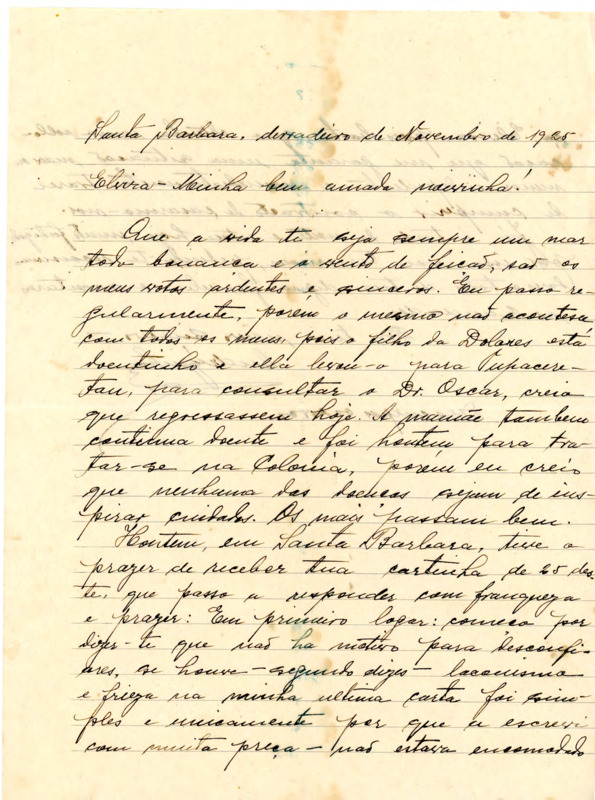 Santa Barbara, derradeiro de Novembro de 1925
Elvira - Minha bem amada noivinha!
Que a vida te seja sempre um mar
todo bonança e o vento de feição, são os
meus votos ardentes e sinceros. Eu passo re-
gularmente, porém o mesmo não acontesa
com todos os meus, pois o filho da Dolores está
doentinho e ella levou-o para Tupacere-
tan, para consultar o Dr. Oscar, creio
que regressassem hoje. A mamãe tambem
continua doente e foi hontem para tra-
tar-se na Colonia, porém eu creio
que nenhuma das doenças sejam de ins-
pirar cuidados. Os mais passam bem.
Hontem, em Santa Barbara, tive o
prazer de receber tua cartinha de 25 des-
te, que passo a responder com franqueza
e prazer: Em primeiro logar: começo por
dizer-te que não ha motivo para desconfi-
ares, se houve - segundo dizes - laconismo
e frieza na minha ultima carta foi sim-
ples e unicamente por que a escrevi
com muita preça - não estava encomodado